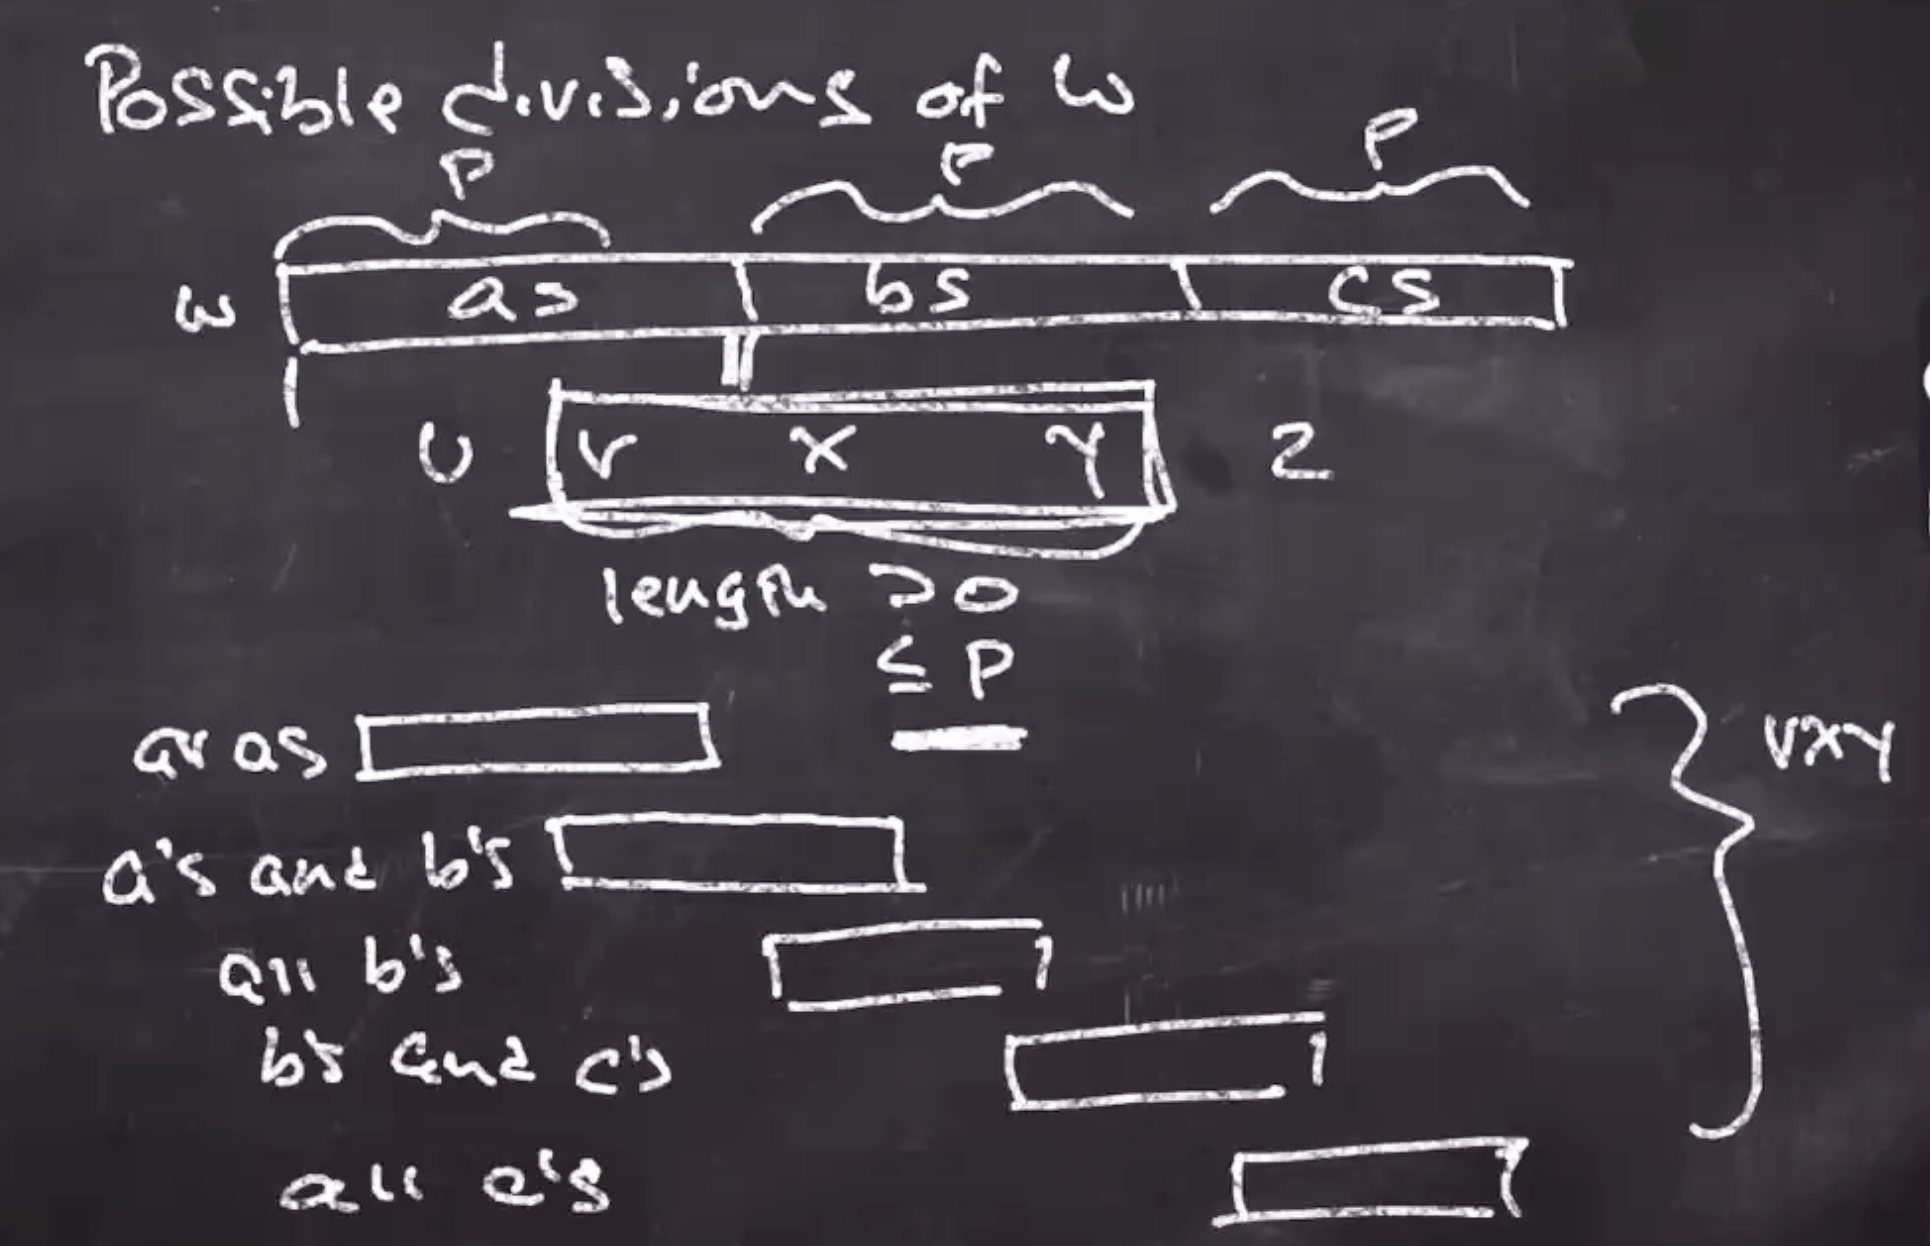 Possible divisions of w
P P P
w as bs cs
U V X Y Z
length > 0
≤ P
as
vxy
a's and b's
all b's
b's and c's
all c's